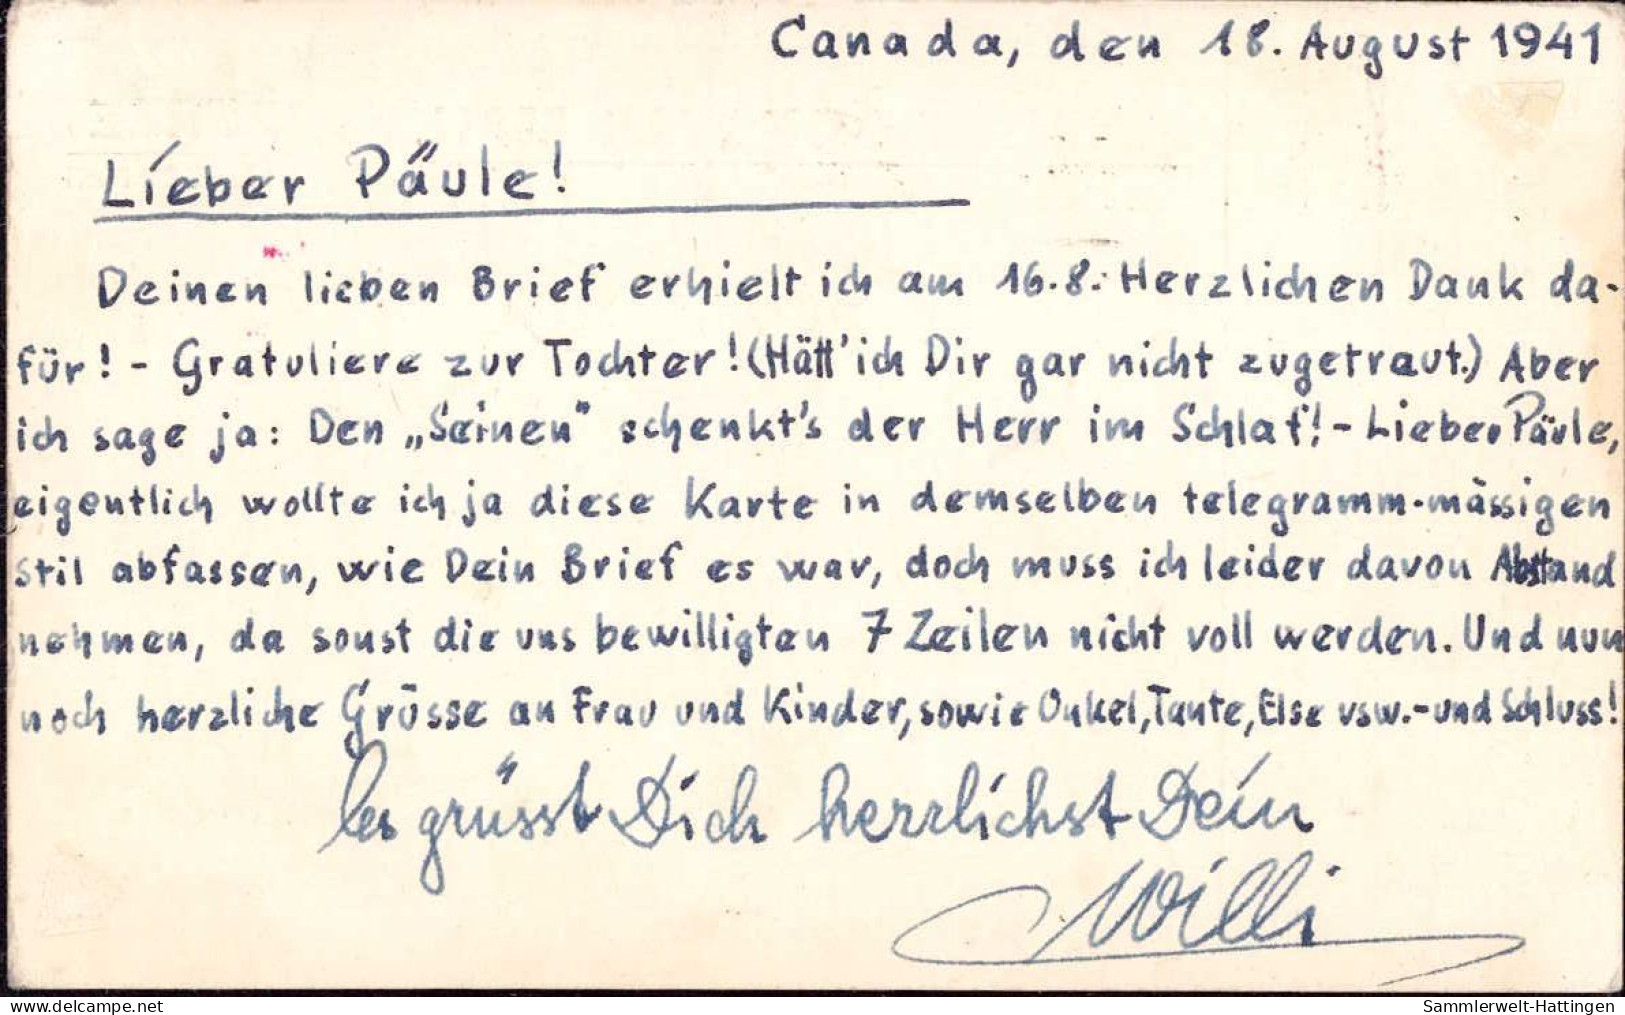 Canada, den 18. August 1941
Lieber Päule!
Deinen lieben Brief erhielt ich am 16.8. Herzlichen Dank da-
für! - Gratuliere zur Tochter! (Hätt' ich Dir gar nicht zugetraut.) Aber
ich sage ja: Den „Seinen" schenkt's der Herr im Schlaf! - Lieber Päule,
eigentlich wollte ich ja diese Karte in demselben telegramm-mässigen
Stil abfassen, wie Dein Brief es war, doch muss ich leider davon Abstand
nehmen, da sonst die uns bewilligten 7 Zeilen nicht voll werden. Und nun
noch herzliche Grüsse an Frau und Kinder, sowie Onkel, Tante, Else usw. - und Schluss!
Es grüsst Dich herzlichst Dein
Willi
delcampe.net
Sammlerwelt-Hattingen